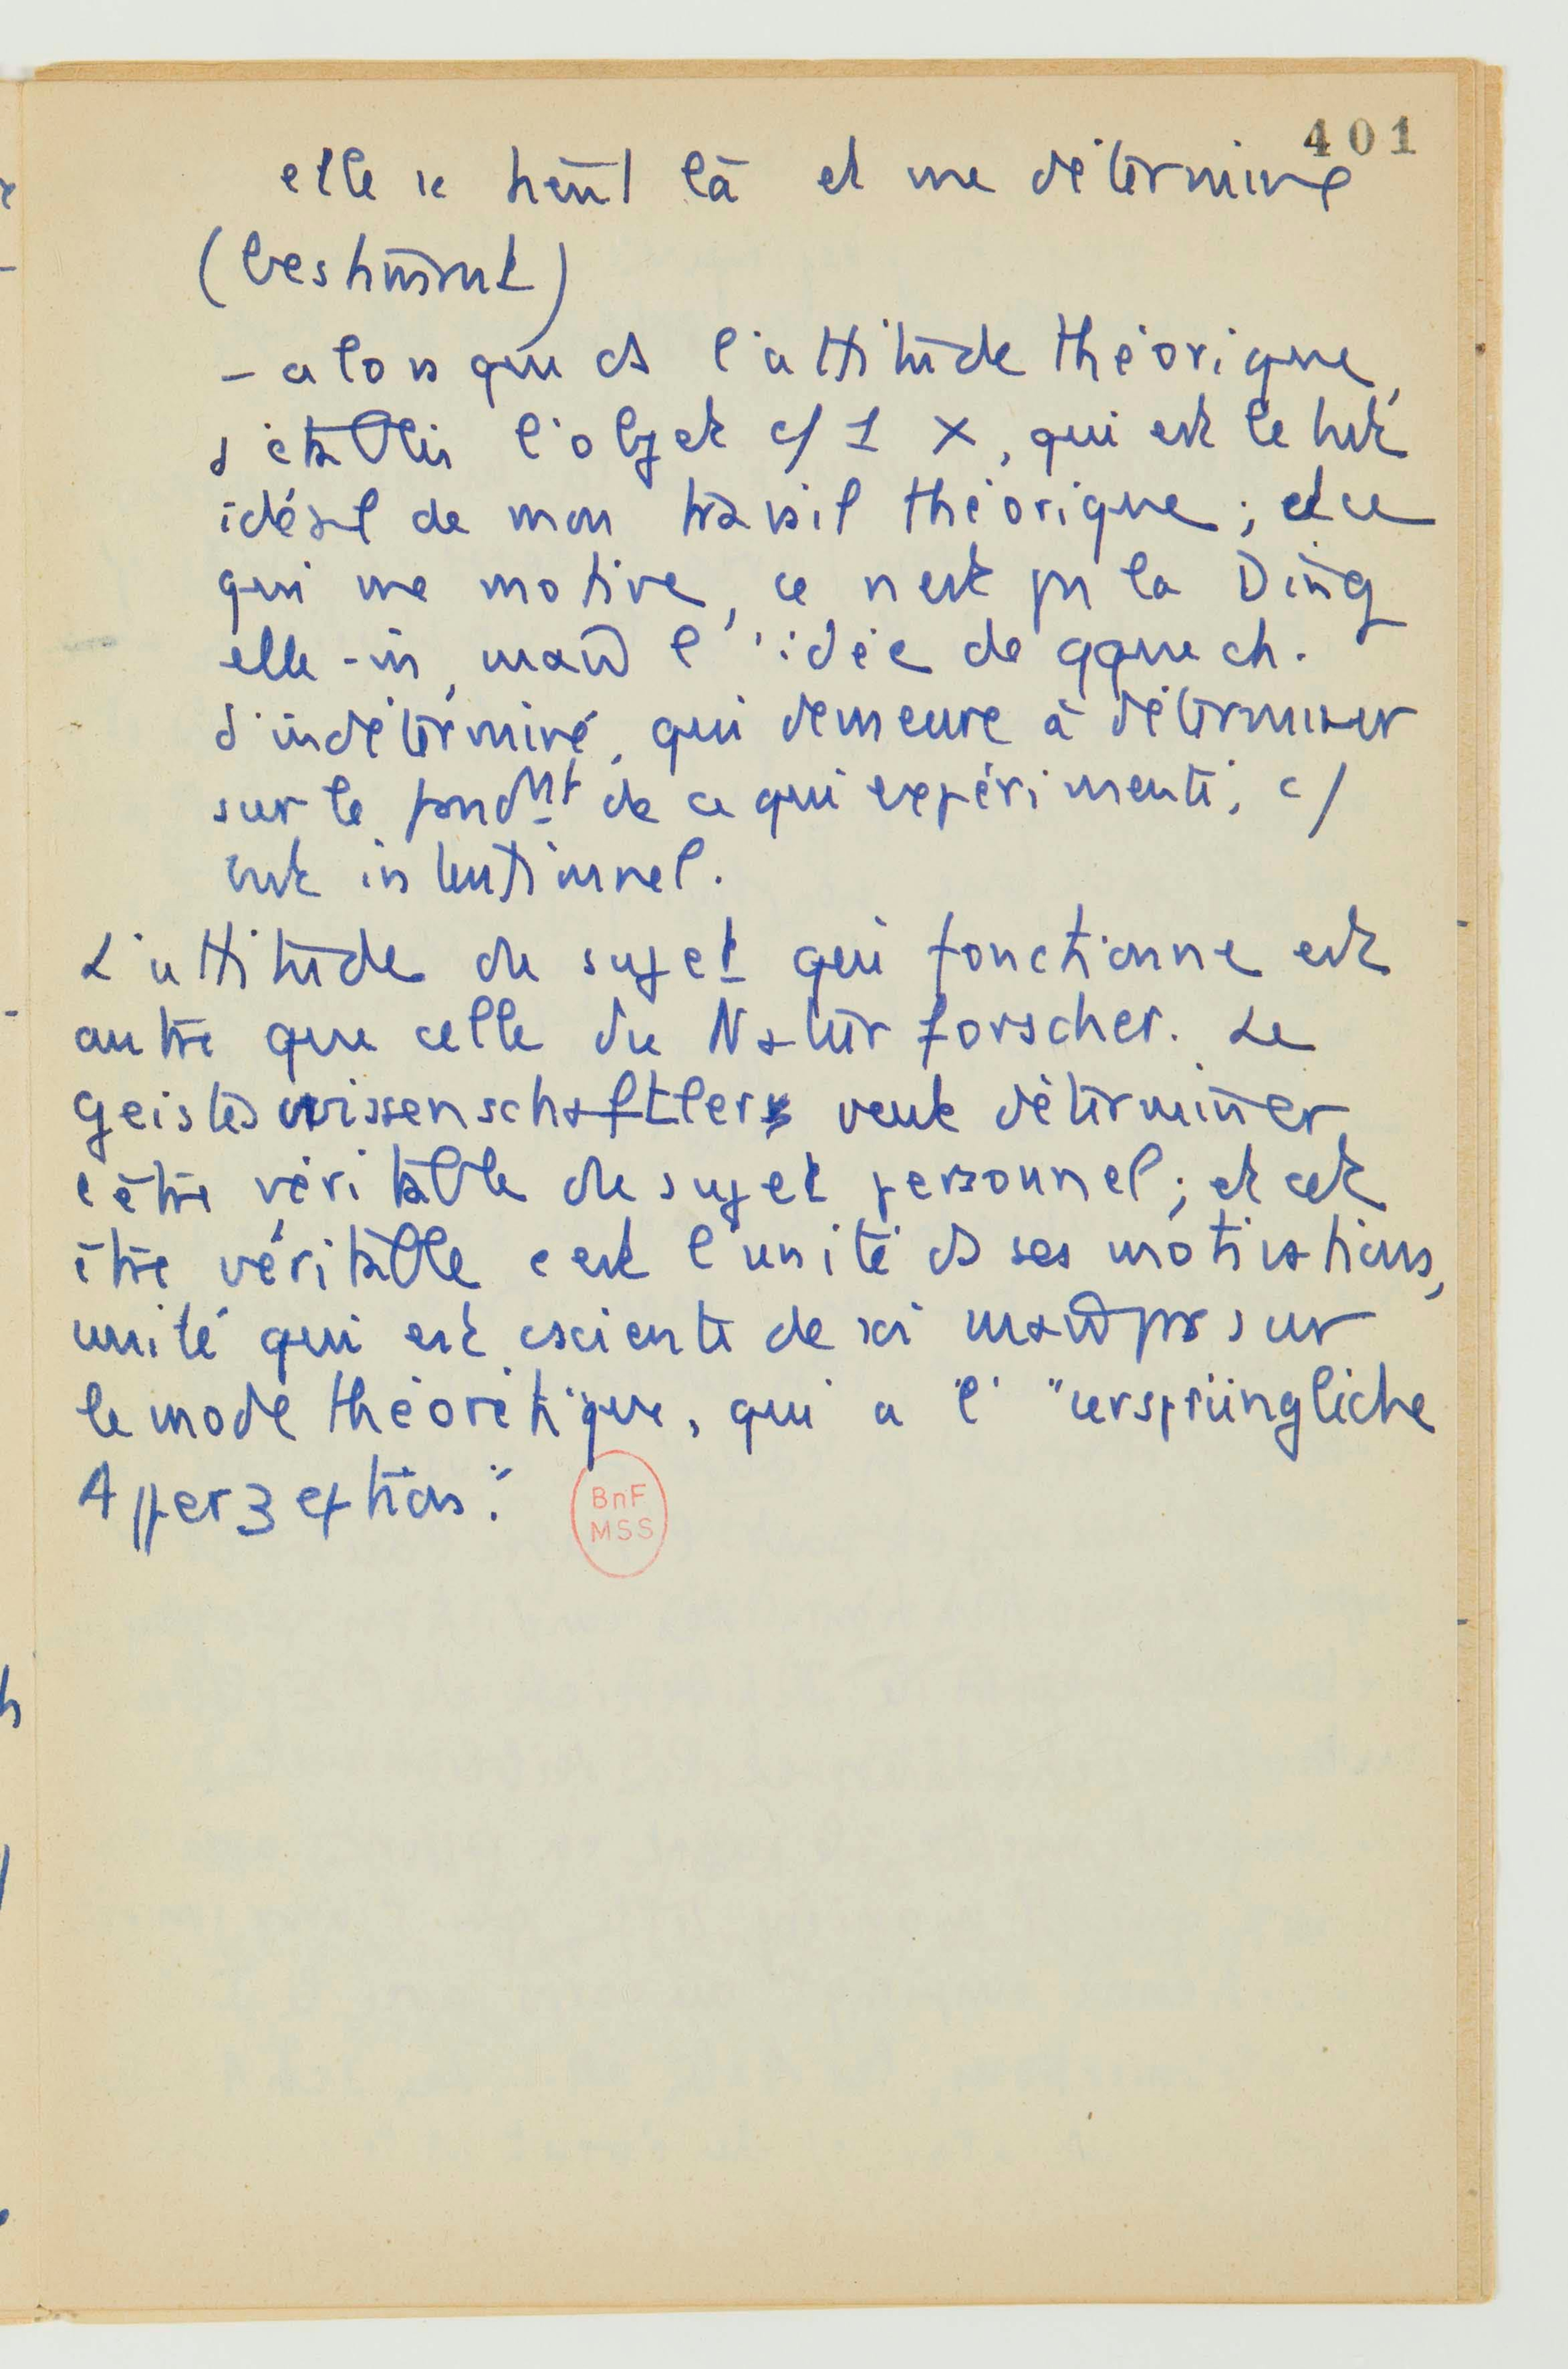 401
elle se tient là et me détermine
(bestimmt)
- alors que ds l'attitude théorique,
j'établis l'objet c/ 1 X, qui est le but
idéal de mon travail théorique ; et ce
qui me motive, ce n'est pas la Ding
elle-m, mais l'idée de qque ch.
d'indéterminé, qui demeure à déterminer
sur le fondmt de ce qui expérimenté, c/
but intentionnel.
L'attitude du sujet qui fonctionne est
autre que celle du Naturforscher. Le
Geisteswissenschaftler veut déterminer
l'être véritable du sujet personnel ; et cet
être véritable c'est l'unité ds ses motivations,
unité qui est csciente de soi mais pas sur
le mode théorétique, qui a l' "ursprüngliche
Apperzeption".
BnF
MSS